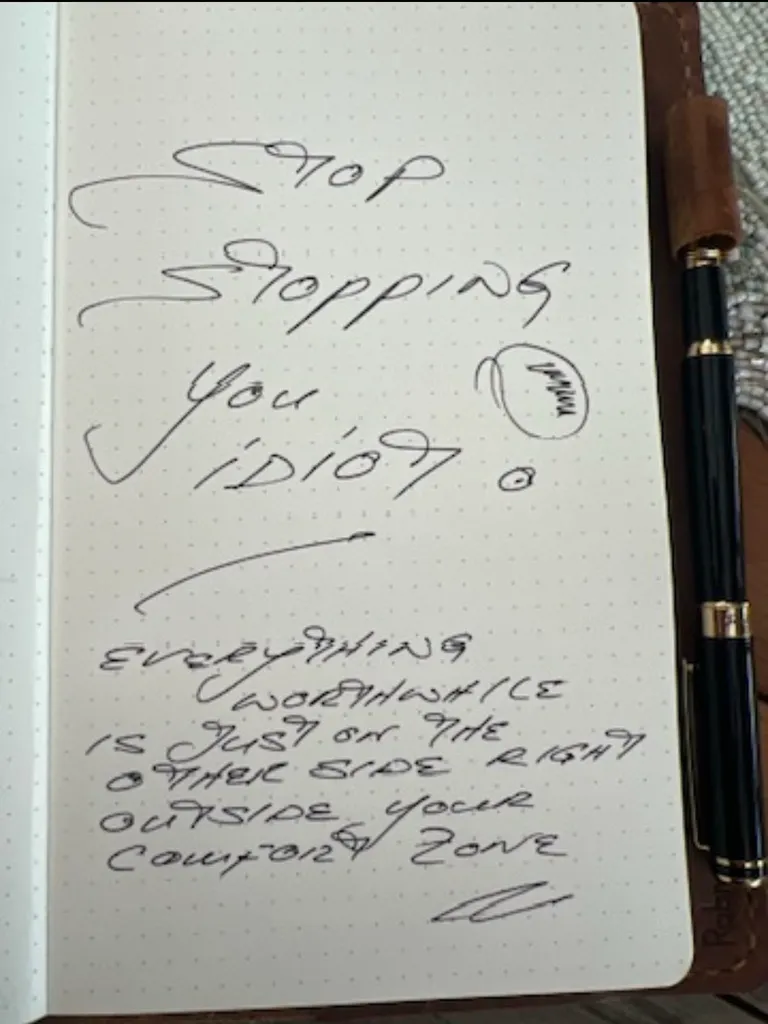 STOP
STOPPING
YOU
IDIOT.
EVERYTHING
WORTHWHILE
IS JUST ON THE
OTHER SIDE RIGHT
OUTSIDE YOUR
COMFORT ZONE